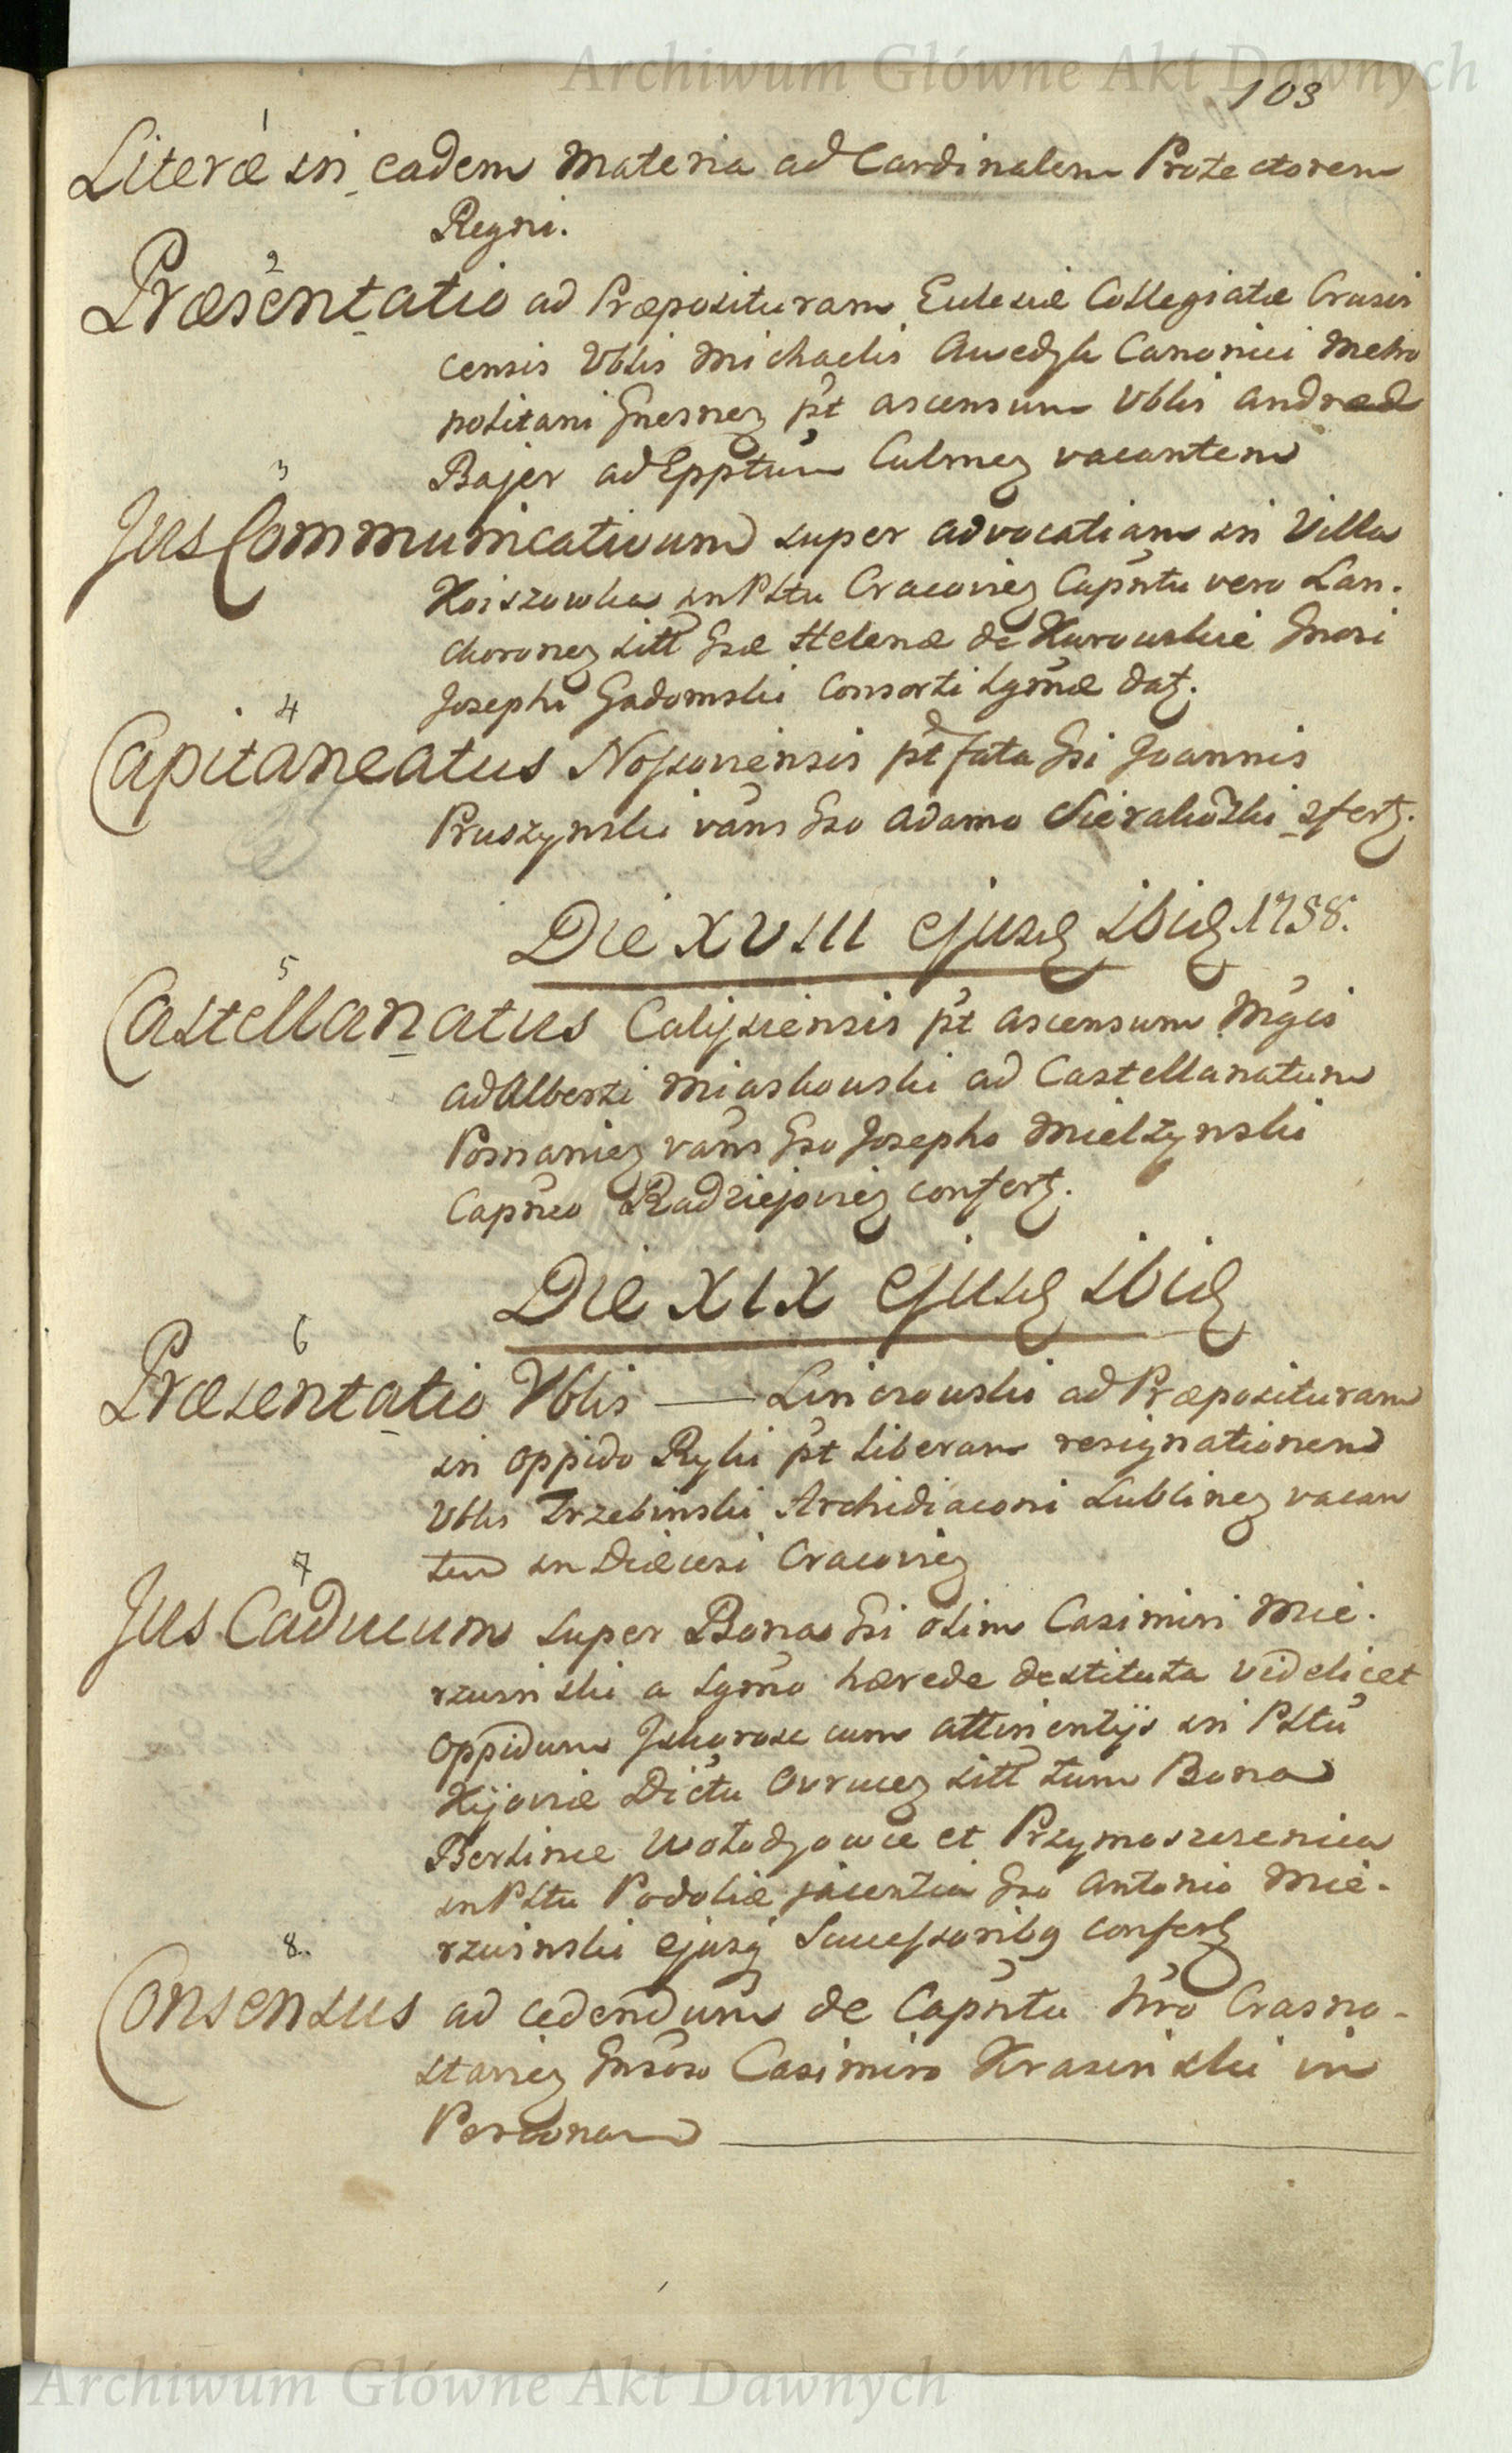 Archiwum Główne Akt Dawnych
103
1
Literæ in eadem Materia ad Cardinalem Protectorem
Regni.
2
Præsentatio ad Præposituram Eclesiæ Collegiatæ Crusvi
censis Vblis Michaelis Awedyk Canonici Metro
politani Gnesnez pt ascensum Vblis Andreæ
Bajer ad Epptum Culmez vacantem
3
Jus Communicativum super advocatiam in Villa
Koiszowka in Pltu Cracoviez Capntu vero Lan.
choronez sitt Gsæ Helenæ de Kurowskie Gnosi
Josephi Gadomski Consorti Lgmæ datz.
4
Capitaneatus Nossoviensis pt fata Gsi Joannis
Pruszynski vans Gso Adamo Sierakowski Cfertz.
Die XVIII ejusd ibid 1758.
5
Castellanatus Calissiensis pt ascensum Mgis
Adalberti Miaskowski ad Castellanatum
Posnaniez vans Gso Josepho Mielzynski
Capneo Radziejoviez confertz.
Die XIX ejusd ibid
6
Præsentatio Vblis — Linowski ad Præposituram
in Oppido Ryki pt liberam resignationem
Vblis Trzebinski Archidiaconi Lublinez vacan
tem in Diæcesi Cracoviez
7
Jus Caducum super Bona Gsi olim Casimiri Mie.
rzwinski a Lgmo hærede destituta videlicet
Oppidum Iskorosc cum attinentijs in Pltu
Kijoviæ Dictu Ovrucez sitt tum Bona
Berlince Wolodjowce et Przymoszczenica
in Pltu Podoliæ jacentia Gso Antonio Mie.
rzwinski ejusq Successoribq confertz
8.
Consensus ad cedendum de Capntu Nro Crasno-
staviez Gnsoso Casimiro Krasinski in
Personam
Archiwum Główne Akt Dawnych